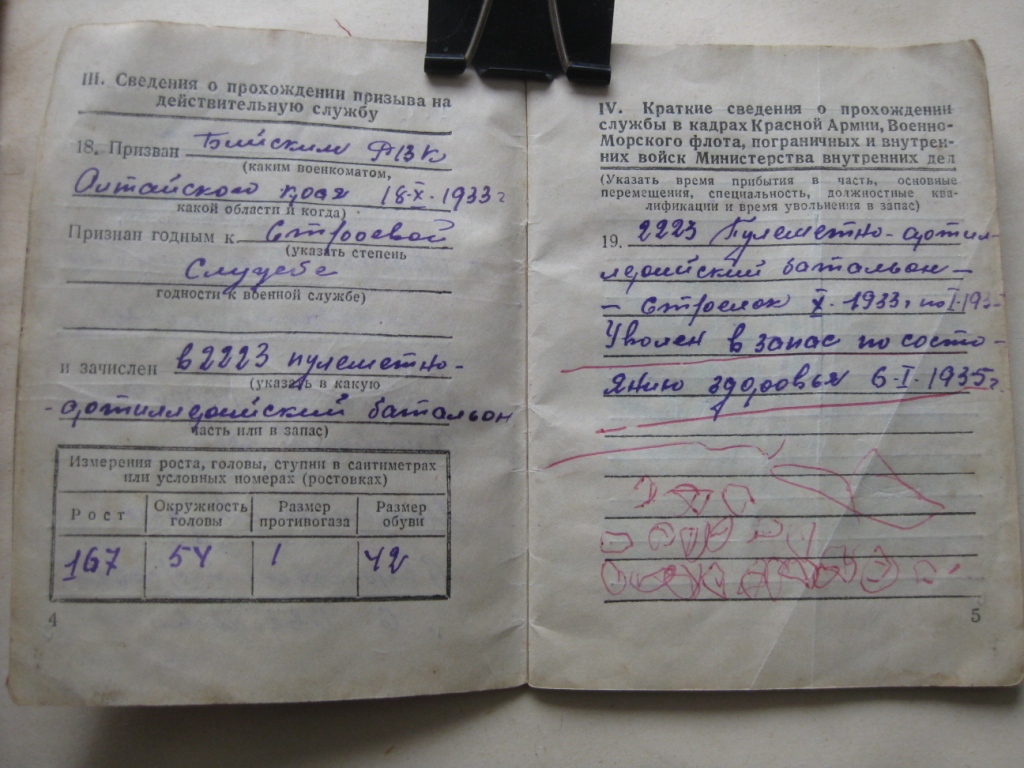 III. Сведения о прохождении призыва на
действительную службу
18. Призван Бийским РВК
(каким военкоматом,
Алтайского края 18.X.1933 г
какой области и когда)
Признан годным к Строевой
(указать степень
Службе
годности к военной службе)
и зачислен в 2223 пулеметно-
(указать в какую
-артиллерийский батальон
часть или в запас)
Измерения роста, головы, ступни в сантиметрах
или условных номерах (ростовках)
Рост Окружность головы Размер противогаза Размер обуви
167 54 1 42
4
IV. Краткие сведения о прохождении
службы в кадрах Красной Армии, Военно-
Морского флота, пограничных и внутрен-
них войск Министерства внутренних дел
(Указать время прибытия в часть, основные
перемещения, специальность, должностные ква-
лификации и время увольнения в запас)
19. 2223 Пулеметно-артил-
лерийский батальон -
- Стрелок X.1933, по I.193
Уволен в запас по состо-
янию здоровья 6.I.1935 г.
5